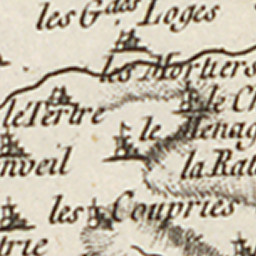 les G.des Loges
les Mortiers
le Tertre
le Ch
le Menag
nveil
la Rat
les Coupries
trie